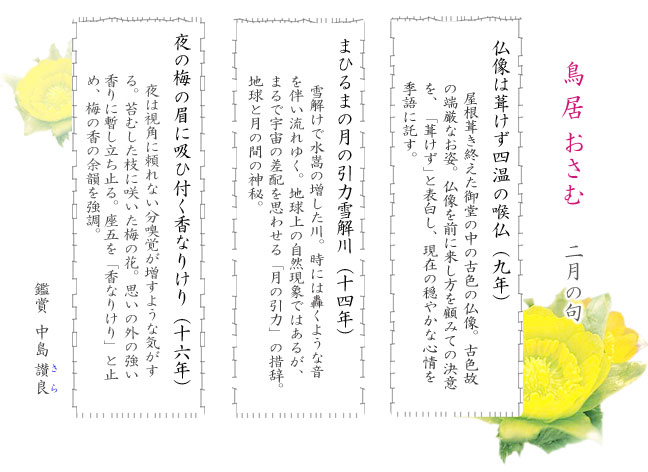 鳥居おさむ 二月の句
仏像は葺けず四温の喉仏（九年）
屋根葺き終えた御堂の中の古色の仏像。古色故
の端厳なお姿。仏像を前に来し方を顧みての決意
を、「葺けず」と表白し、現在の穏やかな心情を
季語に託す。
まひるまの月の引力雪解川（十四年）
雪解けで水嵩の増した川。時には轟くような音
を伴い流れゆく。地球上の自然現象ではあるが、
まるで宇宙の差配を思わせる「月の引力」の措辞。
地球と月の間の神秘。
夜の梅の眉に吸ひ付く香なりけり（十六年）
夜は視角に頼れない分嗅覚が増すような気がす
る。苔むした枝に咲いた梅の花。思いの外の強い
香りに暫し立ち止る。座五を「香なりけり」と止
め、梅の香の余韻を強調。
鑑賞 中島讃良
さら